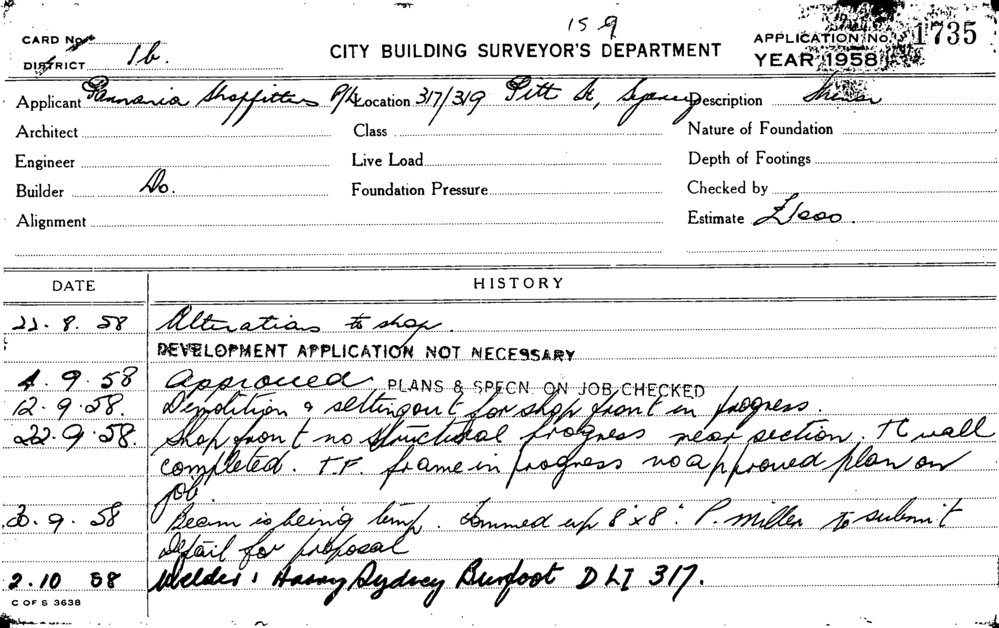 159
CARD No
CITY BUILDING SURVEYOR'S DEPARTMENT
APPLICATION No. 1735
DISTRICT 1b.
YEAR 1958
Applicant Shopfitters P/L Location 317/319 Pitt St, Sydney Description
Architect Class Nature of Foundation
Engineer Live Load Depth of Footings
Builder Do. Foundation Pressure Checked by
Alignment Estimate £1000.
DATE HISTORY
22.8.58 Alterations to shop.
DEVELOPMENT APPLICATION NOT NECESSARY
4.9.58 Approved PLANS & SPECN. ON JOB CHECKED
12.9.58. Demolition & setting out for shop front in progress.
22.9.58. Shop front no structural progress near section. TC wall
completed. T.F. frame in progress no approved plan on
job.
30.9.58 Beam is being temp. Tommed up 8"x8". P. Miller to submit
detail for proposal
2.10 58 Welder: Harry Sydney Burfoot DLI 317.
C OF S 3638